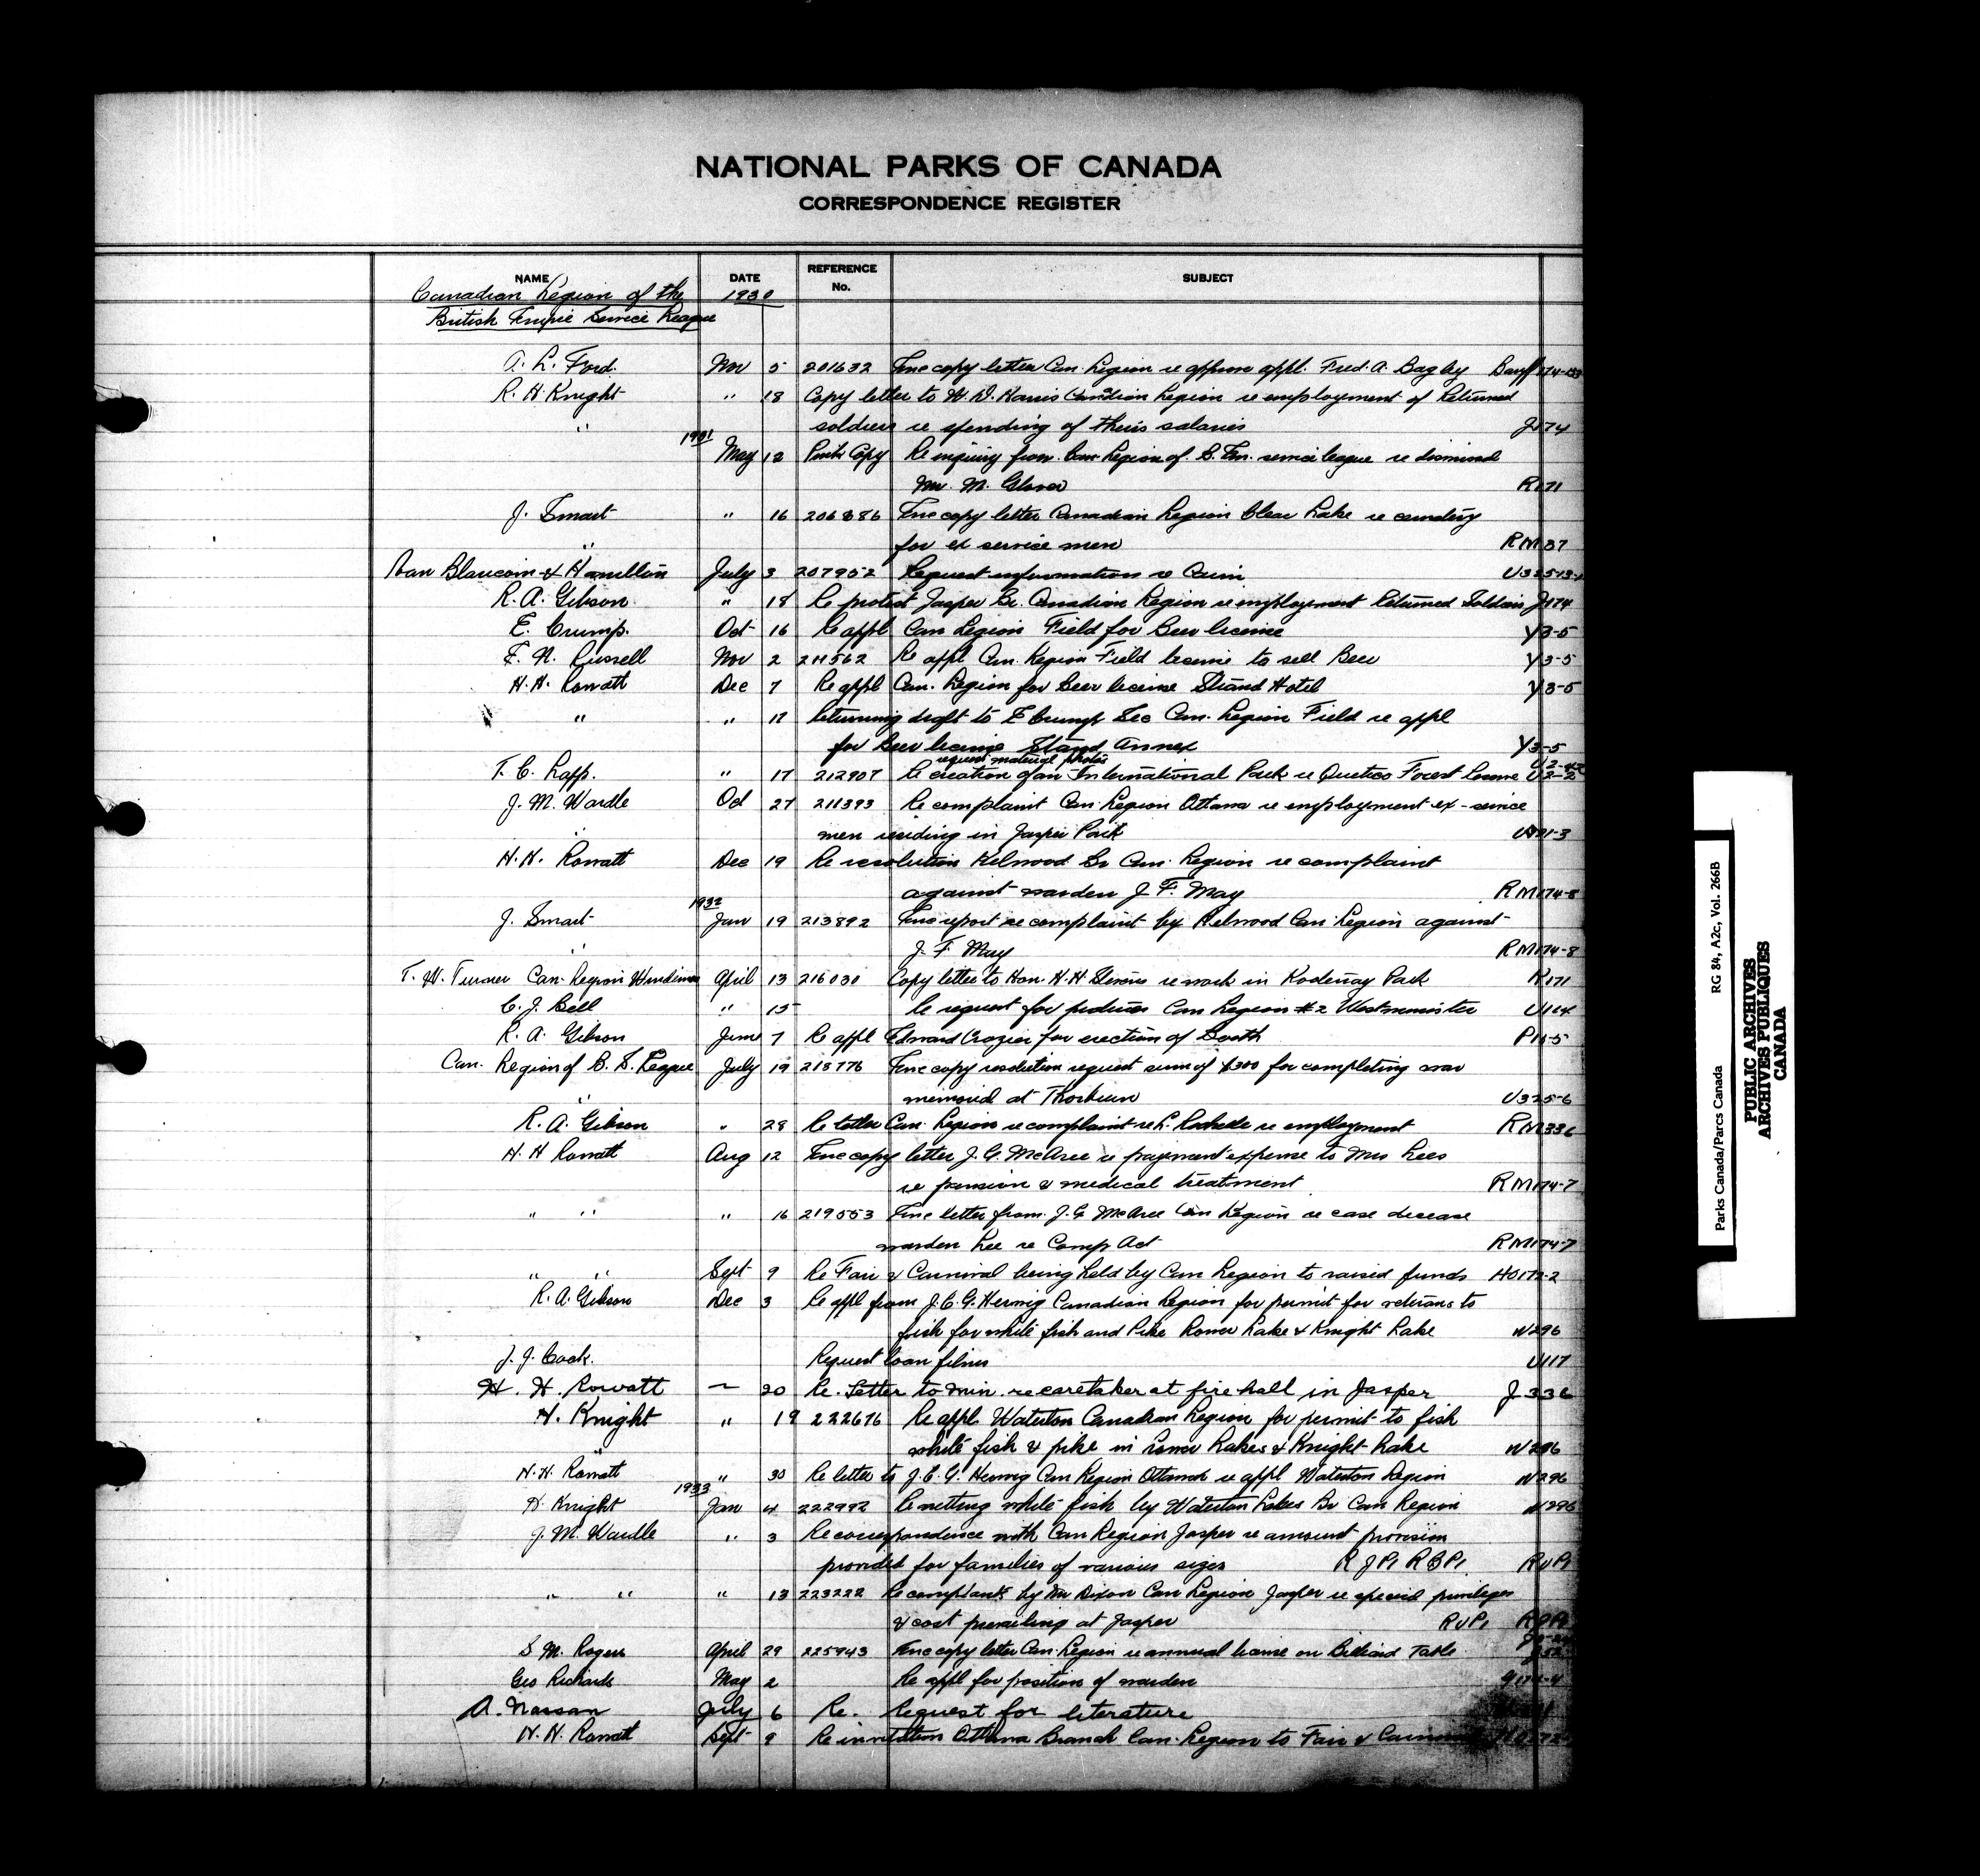 NATIONAL PARKS OF CANADA
CORRESPONDENCE REGISTER
NAME DATE REFERENCE No. SUBJECT
Canadian Legion of the 1930
British Empire Service League
A. L. Ford. Nov 5 201632 Enc copy letter Can. Legion re appl. Fred. A. Bagley Banff
R. H. Knight " 18 Copy letter to Canadian Legion re employment of Returned
" soldiers re spending of theirs salaries J174
1931 May 12 Copy Re inquiry from Can Legion of B. Em. service league re dismissal
Mr. M. Glover R171
J. Smart " 16 206886 Enc copy letter Canadian Legion Clear Lake re cemetery
" for ex service men RM37
Hamblin July 3 207952 Request information re Cairn
R. A. Gibson " 18 Re protest Jasper Br. Canadian Legion re employment Returned Soldiers J174
E. Crump. Oct 16 Re appl Can Legion Field for Beer license Y3-5
F. N. Russell Nov 2 211562 Re appl Can. Legion Field license to sell Beer Y3-5
H. H. Rowatt Dec 7 Re appl Can. Legion for Beer license Strand Hotel Y3-5
" " 12 Returning draft to E Crump Sec Can. Legion Field re appl
for Beer license Strand Annex Y3-5
request material photos
" 17 212907 Re creation of an International Park re Quetico Forest U2-2
J. M. Wardle Oct 27 211393 Re complaint Can Legion Ottawa re employment ex-service
" men residing in Jasper Park
H. H. Rowatt Dec 19 Re resolution Kelwood Br Can. Legion re complaint
against warden J F. May RM174-8
1932
J. Smart Jan 19 213892 Enc report re complaint by Kelwood Can Legion against
" J. F. May RM174-8
T. W. Turner Can. Legion Windermere April 13 216030 Copy letter to Hon. H. H Stevens re work in Kootenay Park R171
C. J. Bell " 15 Re request for pictures Can Legion #2 Westminster
R. A. Gibson June 7 Re appl Edward Crozier for erection of Booth
Can. Legion of B. S. League July 19 218776 Enc copy resolution request sum of $300 for completing war
" memorial at Thorburn U325-6
R. A. Gibson " 28 Re letter Can. Legion re complaint re employment RM336
H. H Rowatt Aug 12 Enc copy letter J. G. McAree re payment expense to Mrs Lees
re pension & medical treatment RM174-7
" " " 16 219553 Enc letter from J. G McAree Can Legion re case disease
warden Lee re Comp Act RM174-7
" " Sept 9 Re Fair & Carnival being held by Can Legion to raised funds HO172-2
R. A. Gibson Dec 3 Re appl from J. C. G. Herwig Canadian Legion for permit for veterans to
fish for white fish and Pike Rower Lake & Knight Lake W296
J. J. Cook. Request loan films U117
H. H. Rowatt — 20 Re. Letter to Min. re caretaker at fire hall in Jasper J 336
H. Knight " 19 222676 Re appl Waterton Canadian Legion for permit to fish
" white fish & pike in Lakes & Knight Lake W296
H. H. Rowatt " 30 Re letter to J. C. G. Herwig Can Legion Ottawa re appl Waterton Legion W296
1933
H. Knight Jan 4 222992 Re netting white fish by Waterton Lakes Br Can Legion W296
J. M. Wardle " 3 Re correspondence with Can Legion Jasper re amount provision
provided for families of various sizes
" " " 13 223222 Re complaints by Mr Dixon Can Legion Jasper re special privileges
& cost prevailing at Jasper
S. M. Rogers April 29 225943 Enc copy letter Can. Legion re annual license on Billiard Table
Geo Richards May 2 Re appl for position of warden
July 6 Re. Request for literature
H. H. Rowatt Sept 9 Re invitation Ottawa Branch Can. Legion to Fair & Carnival
Parks Canada/Parcs Canada RG 84, A2c, Vol. 266B
PUBLIC ARCHIVES
ARCHIVES PUBLIQUES
CANADA